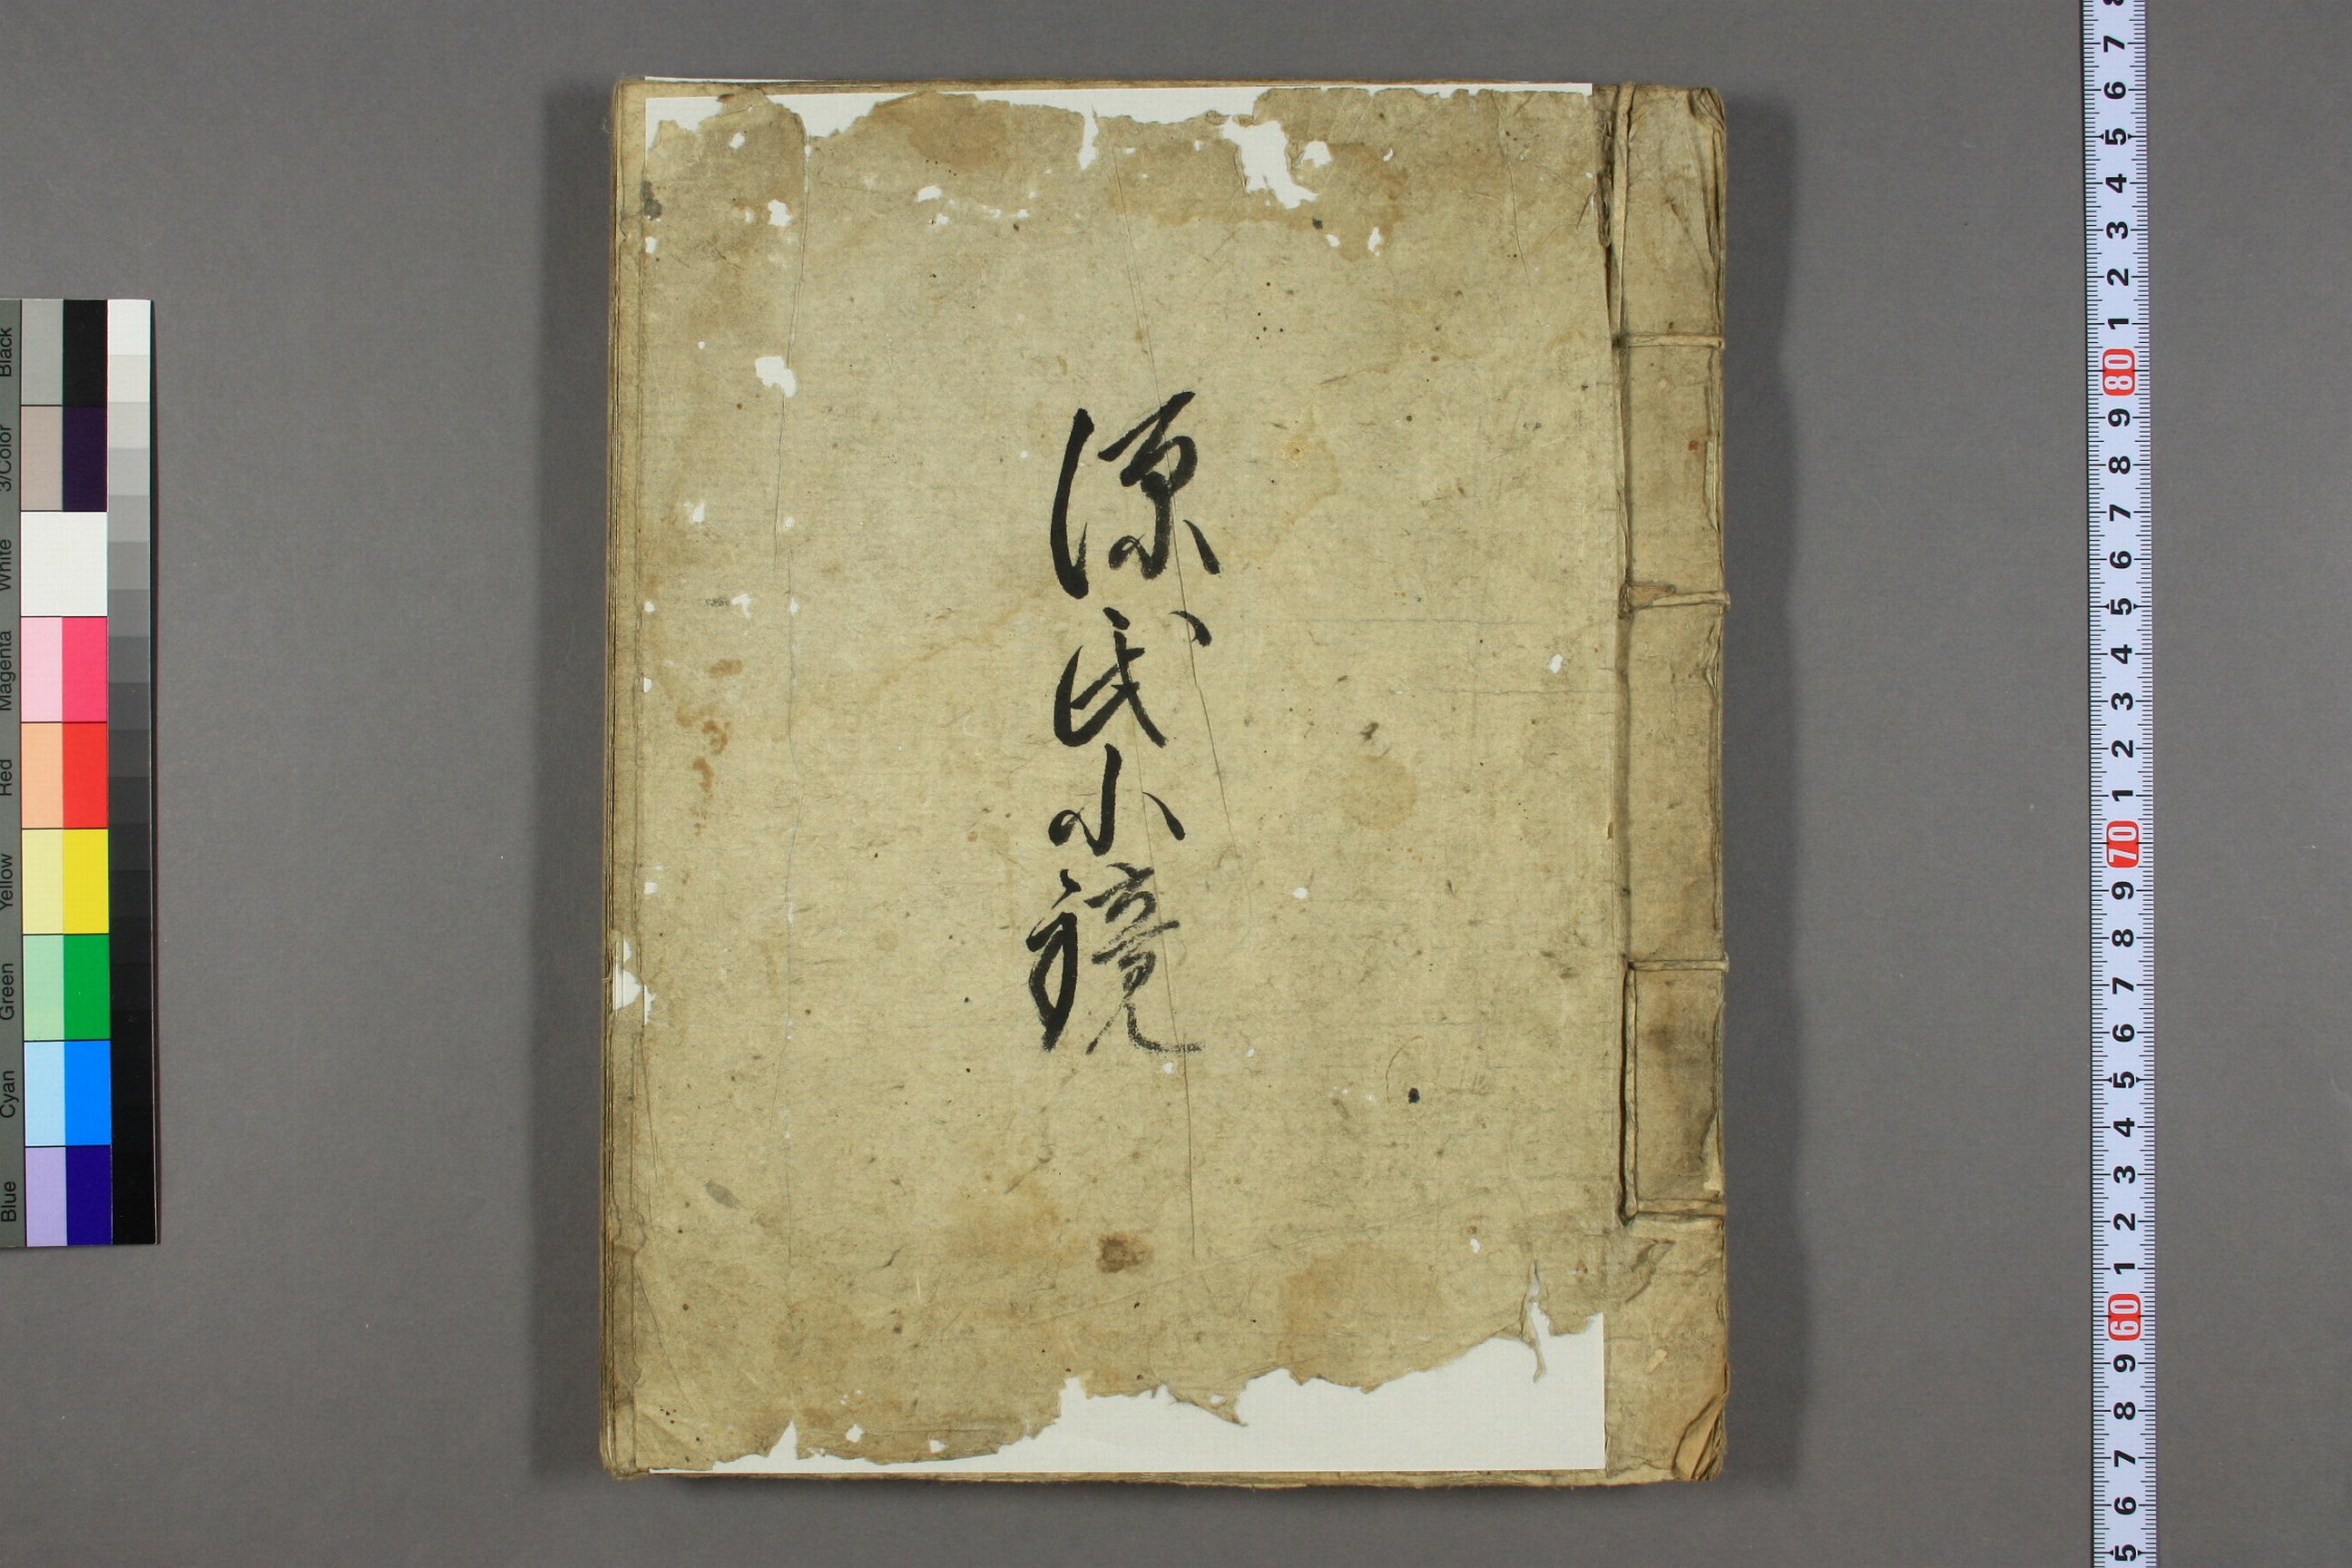 源氏小鏡
Black
3/Color
White
Magenta
Red
Yellow
Green
Cyan
Blue
7
6
5
4
3
2
1
80
9
8
7
6
5
4
3
2
1
70
9
8
7
6
5
4
3
2
1
60
9
8
7
6
5